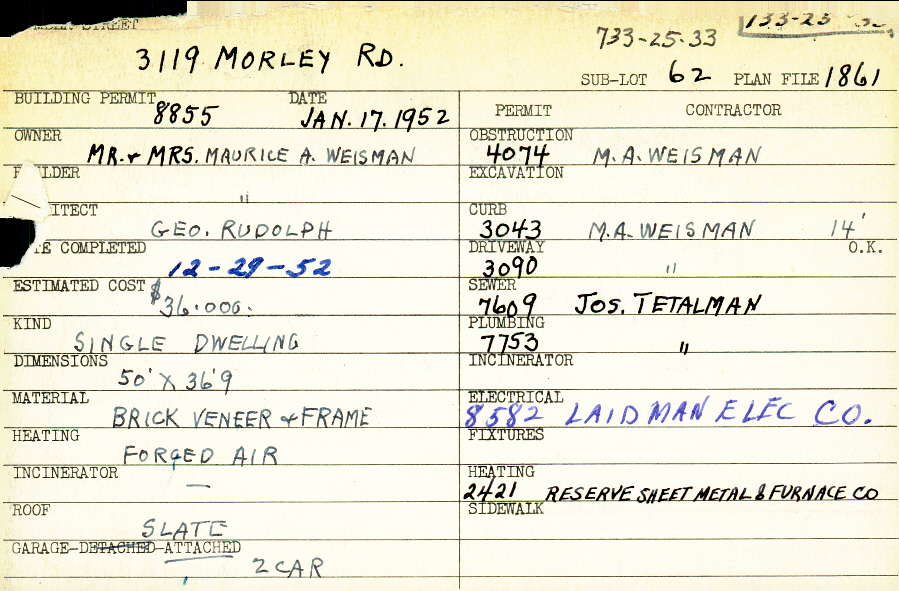 STREET
3119 MORLEY RD.
733-25-33
133-25
SUB-LOT 62 PLAN FILE 1861
BUILDING PERMIT 8855 DATE JAN. 17. 1952
OWNER MR. & MRS. MAURICE A. WEISMAN
LDER "
ITECT GEO. RUDOLPH
TE COMPLETED 12-29-52
ESTIMATED COST $36.000.
KIND SINGLE DWELLING
DIMENSIONS 50' X 36'9
MATERIAL BRICK VENEER & FRAME
HEATING FORCED AIR
INCINERATOR —
ROOF SLATE
GARAGE-DETACHED-ATTACHED 2 CAR
PERMIT CONTRACTOR
OBSTRUCTION 4074 M. A. WEISMAN
EXCAVATION
CURB 3043 M.A. WEISMAN 14'
DRIVEWAY 3090 " O.K.
SEWER 7609 JOS. TETALMAN
PLUMBING 7753 "
INCINERATOR
ELECTRICAL 8582 LAIDMAN ELEC CO.
FIXTURES
HEATING 2421 RESERVE SHEET METAL & FURNACE CO
SIDEWALK